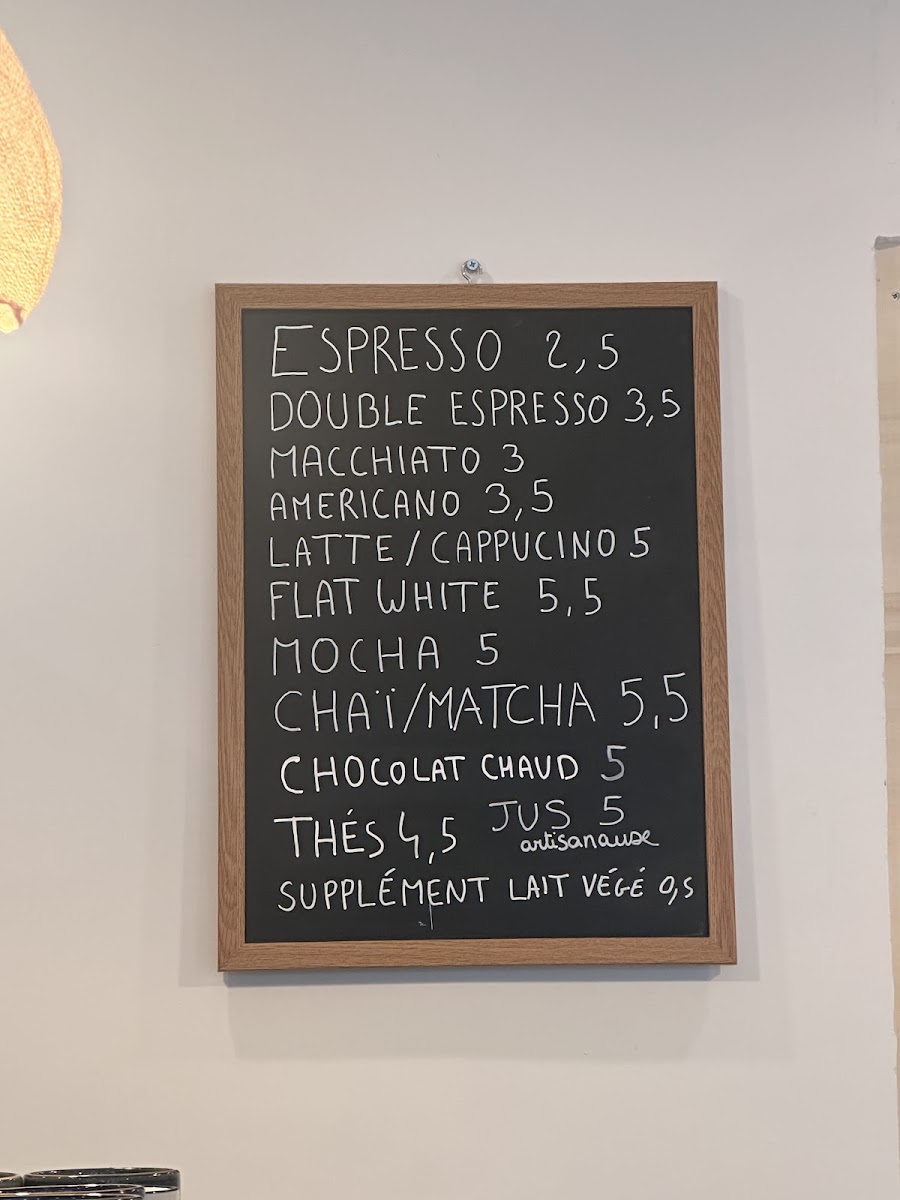 ESPRESSO 2,5
DOUBLE ESPRESSO 3,5
MACCHIATO 3
AMERICANO 3,5
LATTE/CAPPUCINO 5
FLAT WHITE 5,5
MOCHA 5
CHAÏ/MATCHA 5,5
CHOCOLAT CHAUD 5
THÉS 4,5 JUS 5
artisanause
SUPPLÉMENT LAIT VÉGÉ 0,5